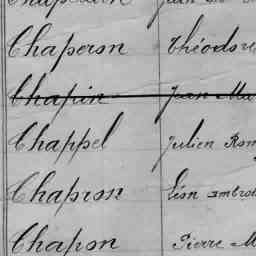 Chaperon Théodore
Chapin Jean Ma
Chappel Julien Rom
Chapron Léon ambroi
Chapon Pierre M